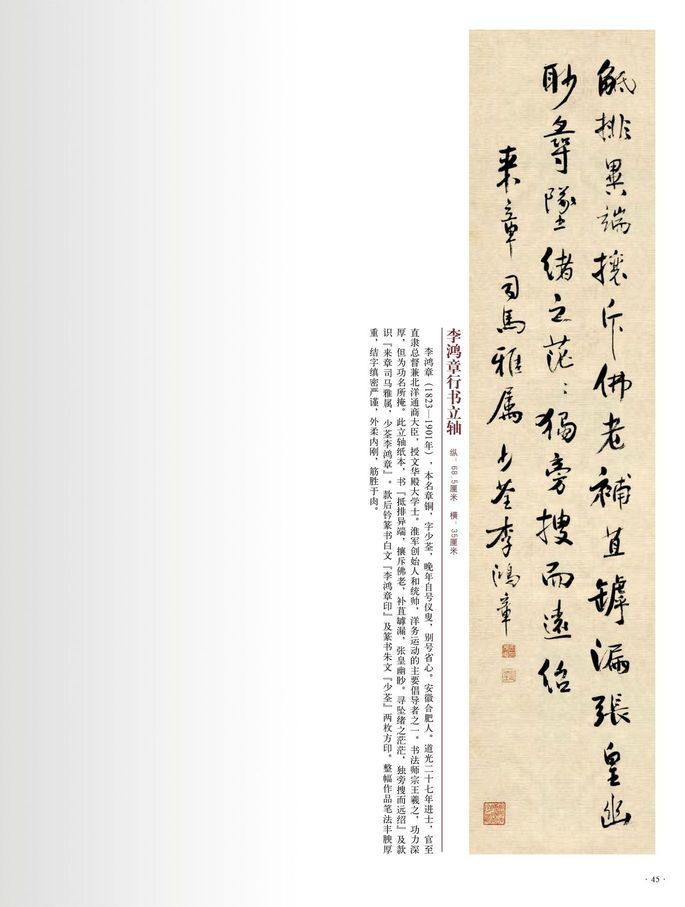 觝排異端攘斥佛老補苴罅漏張皇幽
眇尋墜緒之茫〻獨旁搜而遠紹
来章司馬雅属少荃李鴻章
李鸿章行书立轴
纵：68.5厘米 横：35厘米
李鸿章（1823—1901年），本名章铜，字少荃，晚年自号仪叟，别号省心。安徽合肥人。道光二十七年进士，官至
直隶总督兼北洋通商大臣，授文华殿大学士。淮军创始人和统帅，洋务运动的主要倡导者之一。书法师宗王羲之，功力深
厚，但为功名所掩。此立轴纸本，书『抵排异端，攘斥佛老，补苴罅漏，张皇幽眇。寻坠绪之茫茫，独旁搜而远绍』及款
识『来章司马雅属，少荃李鸿章』。款后钤篆书白文『李鸿章印』及篆书朱文『少荃』两枚方印。整幅作品笔法丰腴厚
重，结字缜密严谨，外柔内刚，筋胜于肉。
· 45 ·